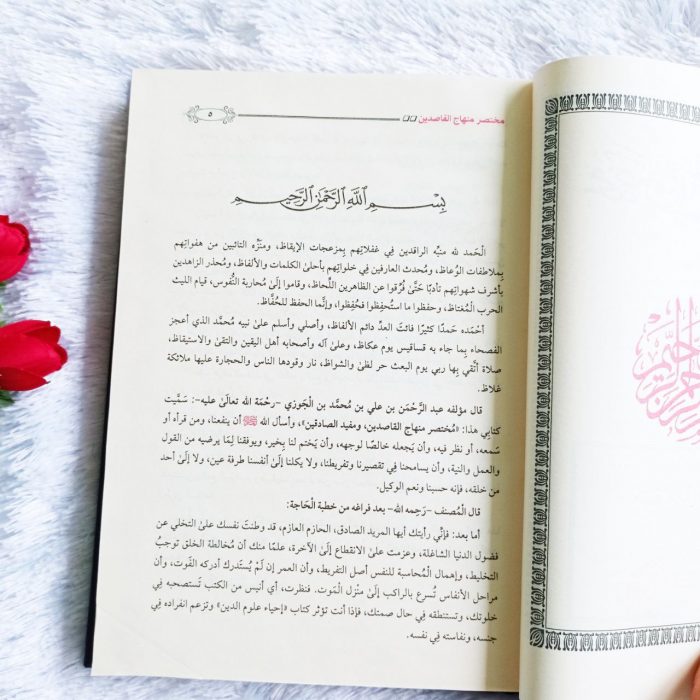 مختصر منهاج القاصدين
٥
بِسْمِ ٱللَّهِ ٱلرَّحْمَٰنِ ٱلرَّحِيمِ
الْحَمد لله منبِّه الراقدين فِي غفلاتِهم بِمزعجات الإيقاظ، ومنَزِّه التائبين من هفواتِهم
بِملاطفات الوُعاظ، ومُحدث العارفين فِي خلواتِهم بأحلَىٰ الكلمات والألفاظ، ومُحذر الزاهدين
بأشرف شهواتِهم تأدبًا حَتَّىٰ فُرِّقوا عن الظاهرين اللِّحاظ، وقاموا إلَىٰ مُحاربة النُّفوس، قيام الليث
الحرب الْمُغتاظ، وحفظوا ما استُحفِظوا فحُفِظوا، وإنَّما الحفظ للحُفَّاظ.
أحْمَده حَمدًا كثيرًا فائتَ العدِّ دائم الألفاظ، وأصلي وأسلم علَىٰ نبيه مُحمَّد الذي أعجز
الفصحاء بِما جاء به قساقيس يوم عكاظ، وعلَىٰ آله وأصحابه أهل اليقين والتقىٰ والاستيقاظ،
صلاة أتَّقي بِها ربي يوم البعث حر لظَىٰ والشواظ، نار وقودها الناس والحجارة عليها ملائكة
غلاظ.
قال مؤلفه عبد الرَّحْمَن بن علي بن مُحمَّد بن الْجَوزي -رحْمَة الله تعالَىٰ عليه-: سَمَّيت
كتابِي هذا: «مُختصر منهاج القاصدين، ومفيد الصادقين»، وأسأل الله ﷺ أن ينفعنا، ومن قرأه أو
سَمعه، أو نظر فيه، وأن يَجعله خالصًا لوجهه، وأن يَختم لنا بِخير، ويوفقنا لِمَا يرضيه من القول
والعمل والنية، وأن يسامحنا فِي تقصيرنا وتفريطنا، ولا يكلنا إلَىٰ أنفسنا طرفة عين، ولا إلَىٰ أحد
من خلقه، فإنه حسبنا ونعم الوكيل.
قال الْمُصنف -رَحِمه الله- بعد فراغه من خطبة الْحَاجة:
أما بعد: فإنِّي رأيتك أيها المريد الصادق، الحازم العازم، قد وطنتَ نفسك علَىٰ التخلي عن
فضول الدنيا الشاغلة، وعزمت علَىٰ الانقطاع إلَىٰ الآخرة، علمًا منك أن مُخالطة الخلق توجبُ
التخليط، وإهمال الْمُحاسبة للنفس أصل التفريط، وأن العمر إن لَمْ يُستدرك أدركه الفَوت، وأن
مراحل الأنفاس تُسرع بالراكب إلَىٰ مَنْزِل الْمَوت. فنظرت، أي أنيس من الكتب تَستصحبه فِي
خلوتك، وتستنطقه فِي حال صمتك، فإذا أنت تؤثر كتاب «إحياء علوم الدين» وتزعم انفراده فِي
جنسه، ونفاسته فِي نفسه.